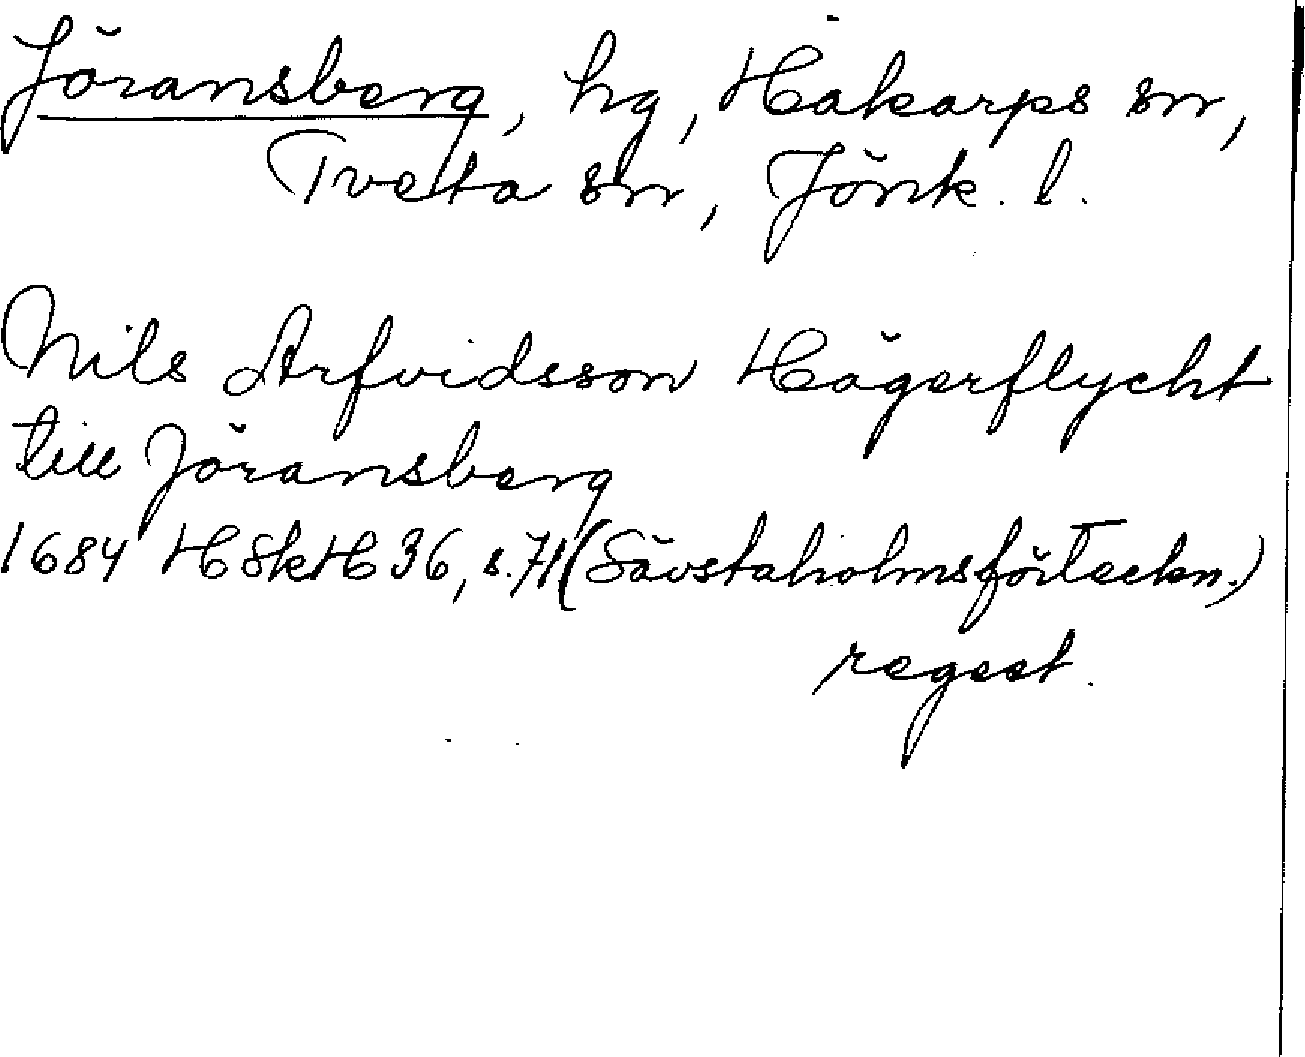 Jöransberg, hg, Hakarps sn,
Tveta sn, Jönk. l.
Nils Arfvidsson Hägerflycht
till Jöransberg
1684 HSkH 36, s. 71 (Sävstaholmsförteckn.)
regest.